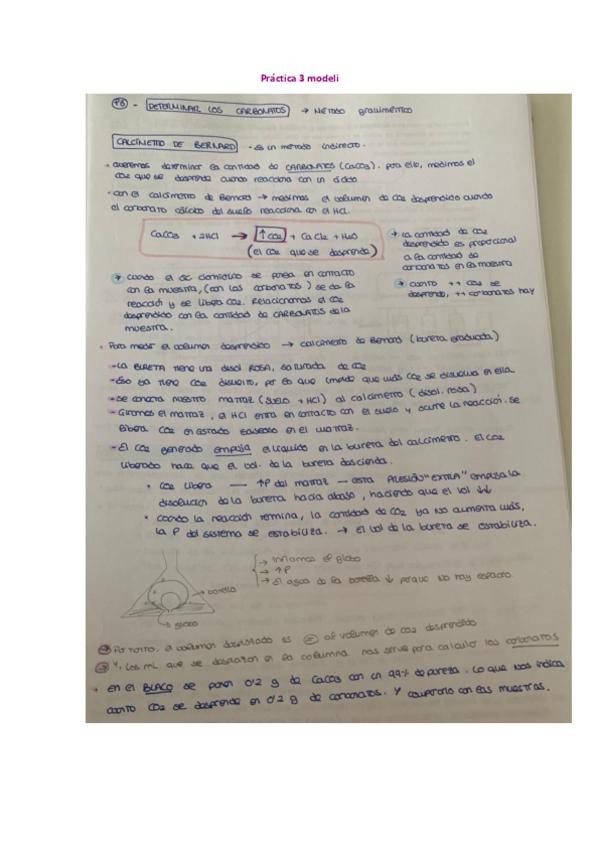 Práctica 3 modeli
P3 - DETERMINAR LOS CARBONATOS → Método gravimétrico
CALCÍMETRO DE BERNARD - Es un método indirecto.
• Queremos determinar la cantidad de CARBONATOS (CaCO3). Para ello, medimos el
CO2 que se desprende cuando reacciona con un ácido
• Con el calcímetro de Bernard → medimos el volumen de CO2 desprendido cuando
el carbonato cálcico del suelo reacciona con el HCl.
CaCO3 + 2HCl → ↑CO2 + CaCl2 + H2O
(el CO2 que se desprende)
→ La cantidad de CO2
desprendido es proporcional
a la cantidad de
carbonatos en la muestra
→ cuanto ++ CO2 se
desprende, ++ carbonatos hay
→ Cuando el ác. clorhídrico se ponga en contacto
con la muestra, (con los carbonatos) se da la
reacción y se libera CO2. Relacionamos el CO2
desprendido con la cantidad de CARBONATOS de la
muestra.
• Para medir el volumen desprendido → calcímetro de Bernard (bureta graduada)
- La BURETA tiene una disol ROSA, saturada de CO2
- Eso ya tiene CO2 disuelto, por lo que impide que más CO2 se disuelva en ella.
- Se conecta nuestro matraz (suelo + HCl) al calcímetro (disol. rosa)
- Giramos el matraz, el HCl entra en contacto con el suelo y ocurre la reacción. Se
libera CO2 en estado gaseoso en el matraz.
- El CO2 generado empuja el líquido en la bureta del calcímetro. El CO2
liberado hace que el vol. de la bureta descienda.
• CO2 libera — ↑P del matraz — esta PRESIÓN "EXTRA" empuja la
disolución de la bureta hacia abajo, haciendo que el vol ↓↓
• Cuando la reacción termina, la cantidad de CO2 ya no aumenta más,
la P del sistema se estabiliza. → el vol de la bureta se estabiliza.
→ Inflamos el globo
→ ↑P
→ El agua de la botella ↓ porque no hay espacio.
→ botella
→ globo
→ Por tanto, el volumen desplazado es = al volumen de CO2 desprendido
→ Y, los mL que se desplazan en la columna nos sirve para calcular los carbonatos
• En el BLANCO se ponen 0'2 g de CaCO3 con un 99% de pureza. Lo que nos indica
cuánto CO2 se desprende en 0'2 g de carbonatos. Y compararlo con las muestras.